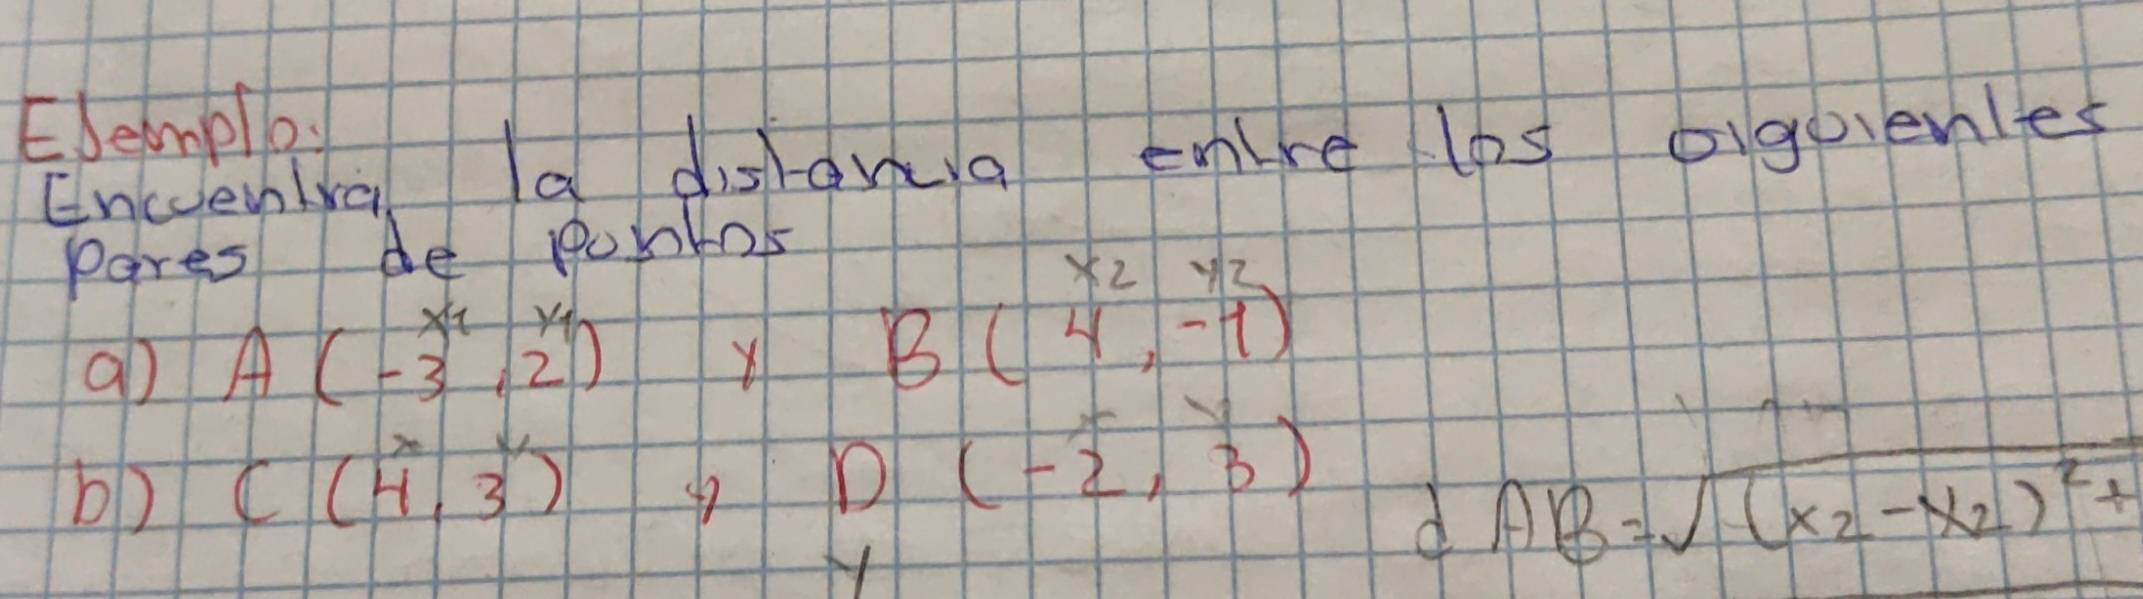 EJemplo:
Encuentra la distancia entre los siguientes
Pares de puntos
x2 y2
x1 y1
a) A (-3, 2) y B (4, -1)
x y x y
b) C (4, 3) y D (-2, 3)
d AB = √(x2 - x2)² +
y